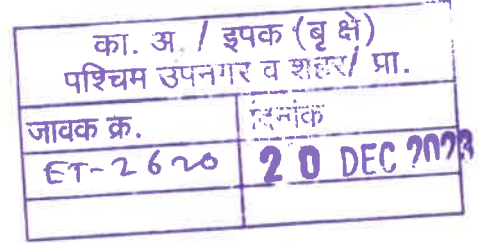 का. अ. / इपक (बृ क्षे)
पश्चिम उपनगर व शहर/ प्रा.
जावक क्र. दिनांक
ET-2620 20 DEC 2023